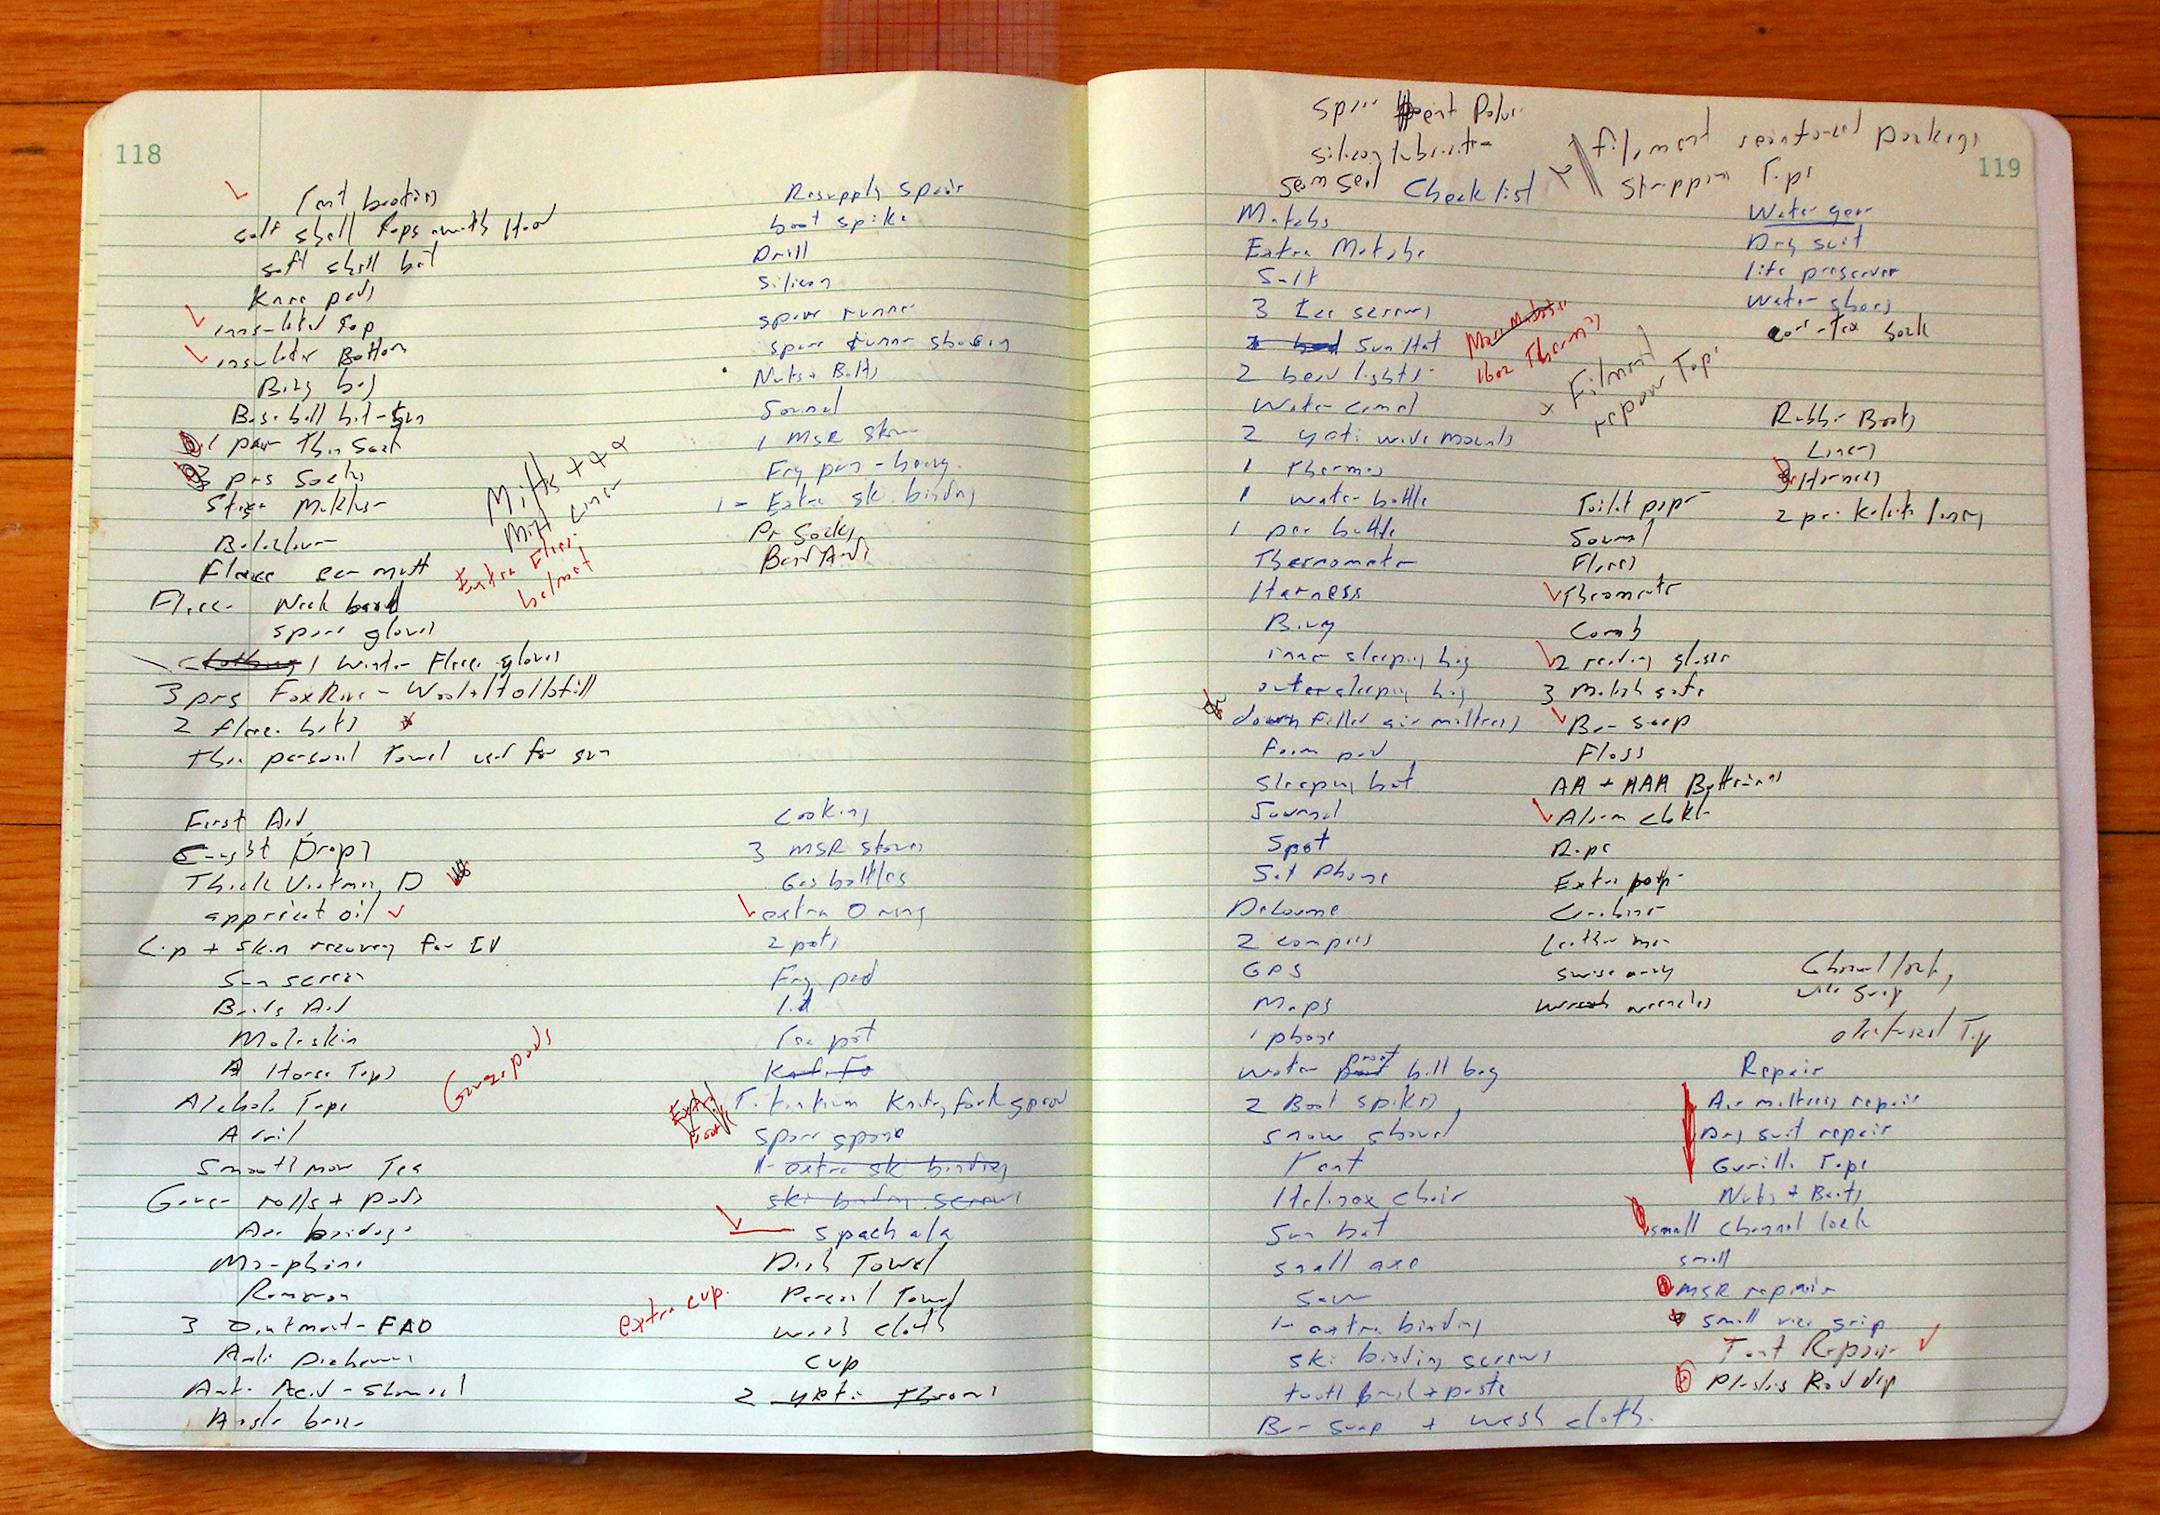 118
Tent booties
soft shell hat
Knee pads
insulated Top
insulated Bottom
Bivy bag
Baseball hat - sun
1 pair thin socks
3 prs Socks
Mitts +
Mitt Liner
Balaclava
Fleece ear muff
Extra Fleece
helmet
Fleece Neck band
spare gloves
1 Winter Fleece gloves
3 prs Fox River - Wool
2 fleece hats
Thin personal Towel used for sun
First Aid
Drops
Thick Vitamin D
appricot oil
Lip + skin recovery for
Sun screen
Band Aid
Moleskin
Horse Tape
Gauze pads
Alcohol
Advil
Smooth move Tea
Gauze rolls + pads
Ace bandage
Morphine
3 Ointment -
Anti
Anti Acid - stomach
Ankle brace
Resupply spare
boot spike
Drill
Silicon
spare runner
spare runner
Nuts + Bolts
Journal
1 MSR stove
Fry pan - heavy
1 - Extra ski binding
Pr Socks
Band Aids
Cooking
3 MSR stoves
Gas bottles
extra O ring
2 pots
Fry pad
Lid
Tea pot
Extra
Titantium Knife fork spoon
spare spoon
1 - extra ski binding
ski binding screws
spachala
Dish Towel
Personal Towel
extra cup.
wash cloth
cup
2 yeti thermos
119
spare tent Poles
silicon lubricate
seam seal
filament reinforced package
strapping Tape
Check list
Matches
Extra Matches
Salt
3 Ice screws
Sun Hat
16 oz Thermos
2 head lights
Filament
repair Tape
Water camel
2 yeti wide mouths
1 thermos
1 water bottle
1 pee bottle
Thermometer
Harness
Bivy
inner sleeping bag
outer sleeping bag
down filled air mattress
foam pad
sleeping hat
Journal
Spot
Sat Phone
DeLorme
2 compass
GPS
Maps
1 phone
water proof belt bag
2 Boot spikes
snow shovel
Tent
Helinox chair
Sun hat
small axe
Saw
1 - extra binding
ski binding screws
tooth brush + paste
Bar soap + wash cloth.
Water gear
Dry suit
life preserver
water shoes
Gor-Tex sock
Rubber Boots
Liners
Harness
2 pr liners
Toilet paper
Journal
Floss
Thermometer
Comb
2 reading glasses
3 Match safe
Bar soap
Floss
AA + AAA Batteries
Alarm clock
Rope
Extra
Carabiner
Leather man
swiss army
needles
Channel lock,
vice grip
Repair
Air mattress repair
Dry suit repair
Gorilla Tape
Nuts + Bolts
small channel lock
small
MSR repair
small vice grip
Tent Repair